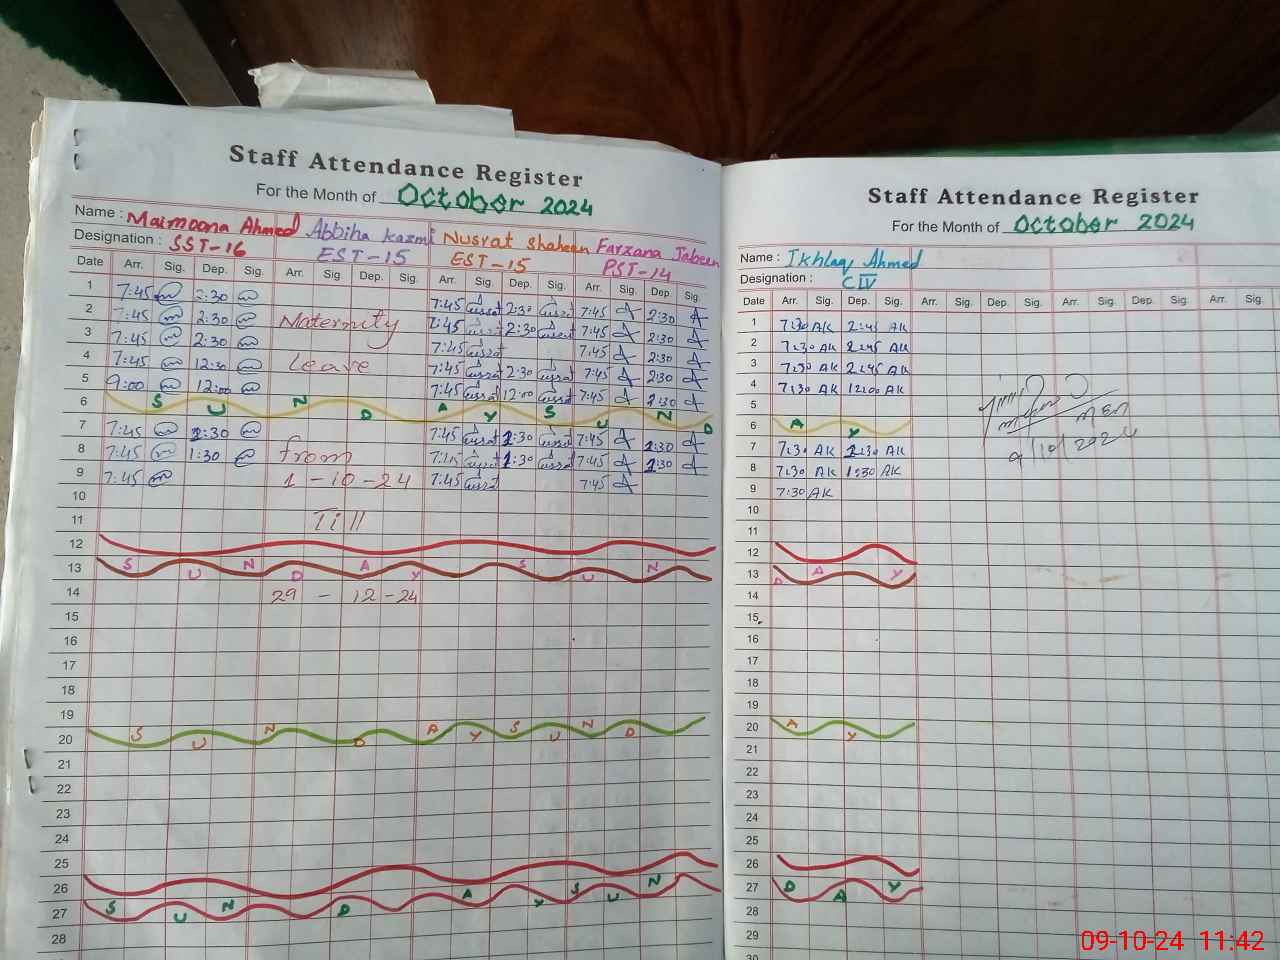 Staff Attendance Register
For the Month of October 2024
Name : Maimoona Ahmed Abbiha Kazmi Nusrat shaheen Farzana Jabeen
Designation : SST-16 EST-15 EST-15 PST-14
Date Arr. Sig. Dep. Sig. Arr. Sig Dep. Sig. Arr. Sig. Dep. Sig. Arr. Sig. Dep. Sig.
1 7:45 2:30 7:45 2:30 7:45 2:30
2 7:45 2:30 Maternity 7:45 2:30 7:45 2:30
3 7:45 2:30 7:45 7:45 2:30
4 7:45 12:30 Leave 7:45 2:30 7:45 2:30
5 9:00 12:00 7:45 12:00 7:45 2:30
6 S U N D A Y S U N D
7 7:45 2:30 7:45 1:30 7:45 1:30
8 7:45 1:30 from 7:45 1:30 7:45 1:30
9 7:45 1-10-24 7:45 7:45
10
11 Till
12
13 S U N D A Y S U N
14 29 - 12-24
15
16
17
18
19
20 S U N D A Y S U N D
21
22
23
24
25
26
27 S U N D A Y S U N
28
Staff Attendance Register
For the Month of October 2024
Name : Ikhlaq Ahmed
Designation : CIV
Date Arr. Sig. Dep. Sig. Arr. Sig. Dep. Sig. Arr. Sig. Dep. Sig. Arr. Sig.
1 7:30 AK 2:45 AK
2 7:30 AK 2:45 AK
3 7:30 AK 2:45 AK
4 7:30 AK 12:00 AK
5
6 A Y
7 7:30 AK 1:30 AK
8 7:30 AK 1:30 AK
9 7:30 AK
MEA
9/10/2024
10
11
12
13 D A Y
14
15
16
17
18
19
20 A Y
21
22
23
24
25
26
27 D A Y
28
29
30
09-10-24 11:42